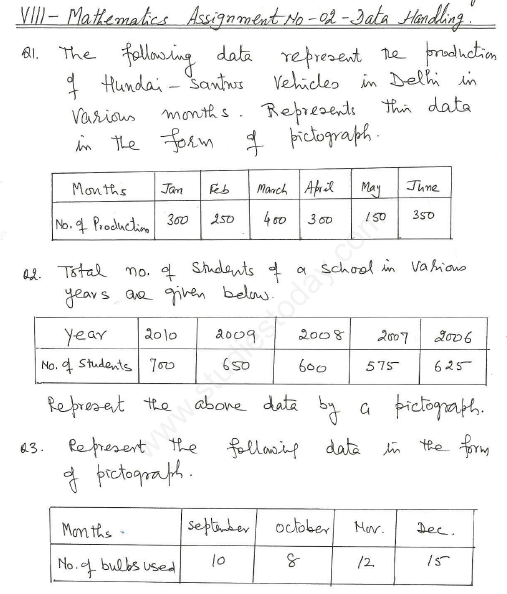 VIII - Mathematics Assignment No - 02 - Data Handling.
Q1. The following data represent the production
of Hundai - Santros Vehicles in Delhi in
various months. Represents this data
in the form of pictograph.
Months Jan Feb March April May June
No. of Production 300 250 400 300 150 350
Q2. Total no. of students of a school in various
years are given below.
Year 2010 2009 2008 2007 2006
No. of Students 700 650 600 575 625
Represent the above data by a pictograph.
Q3. Represent the following data in the form
of pictograph.
Months. September October Nov. Dec.
No. of bulbs used 10 8 12 15
www.studiestoday.com